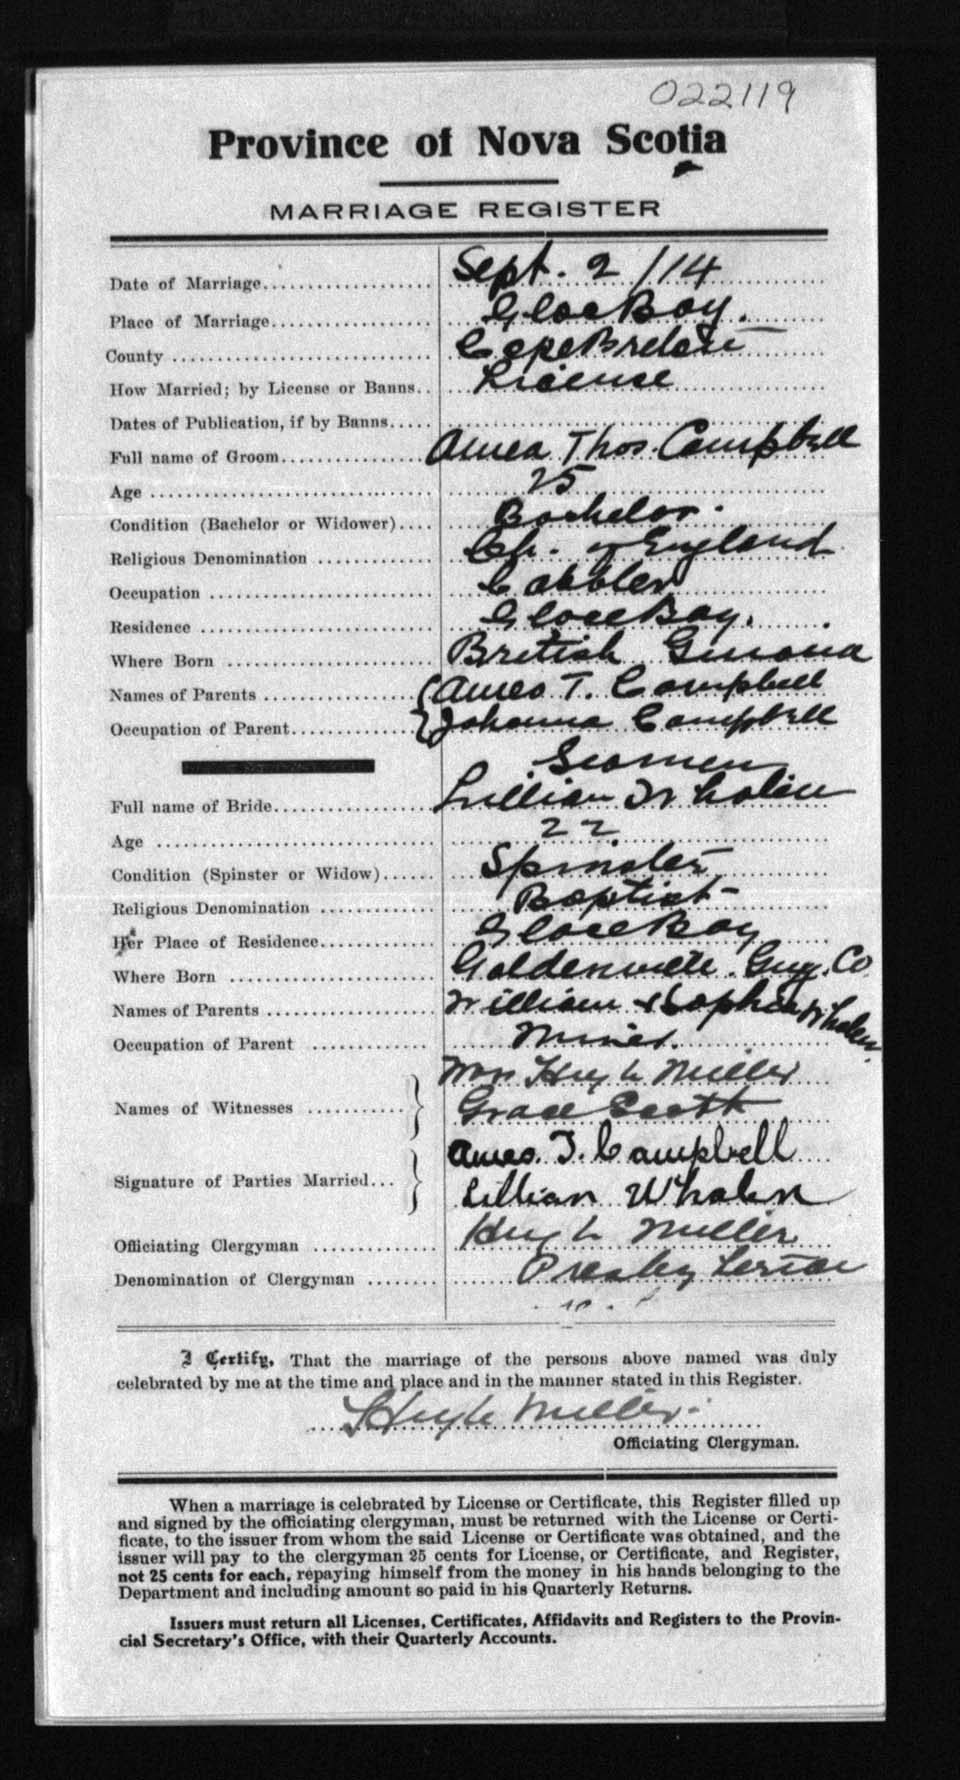 022119
Province of Nova Scotia
MARRIAGE REGISTER
Date of Marriage Sept. 2 /14
Place of Marriage Glace Bay.
County Cape Breton
How Married; by License or Banns License
Dates of Publication, if by Banns
Full name of Groom Ames Thos. Campbell
Age 25
Condition (Bachelor or Widower) Bachelor.
Religious Denomination Ch. of England
Occupation Cobbler
Residence Glace Bay.
Where Born British
Names of Parents Ames T. Campbell
Occupation of Parent Johanna Campbell
Seamen
Full name of Bride Lillian Whalen
Age 22
Condition (Spinster or Widow) Spinster
Religious Denomination Baptist
Her Place of Residence Glace Bay
Where Born Goldenville. Guy. Co.
Names of Parents William & Sophia Whalen
Occupation of Parent Miner.
Names of Witnesses Mrs Hugh Miller
Grace Scott
Signature of Parties Married Ames. T. Campbell
Lillian Whalen
Officiating Clergyman Hugh Miller
Denomination of Clergyman Presbyterian
I Certify, That the marriage of the persons above named was duly
celebrated by me at the time and place and in the manner stated in this Register.
Hugh Miller
Officiating Clergyman.
When a marriage is celebrated by License or Certificate, this Register filled up
and signed by the officiating clergyman, must be returned with the License or Certi-
ficate, to the issuer from whom the said License or Certificate was obtained, and the
issuer will pay to the clergyman 25 cents for License, or Certificate, and Register,
not 25 cents for each, repaying himself from the money in his hands belonging to the
Department and including amount so paid in his Quarterly Returns.
Issuers must return all Licenses, Certificates, Affidavits and Registers to the Provin-
cial Secretary's Office, with their Quarterly Accounts.